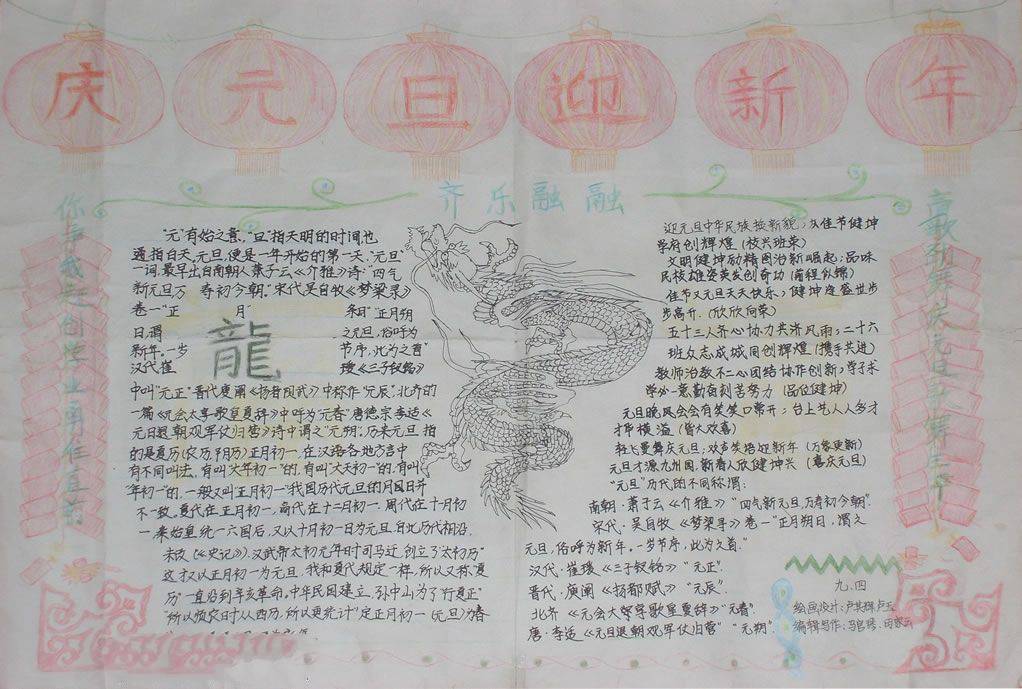 庆元旦迎新年
齐乐融融
"元"有始之意,"旦"指天明的时间,也
通指白天,元旦,便是一年开始的第一天."元旦"
一词,最早出自南朝人萧子云《介雅》诗:"四气
新元旦万 寿初今朝."宋代吴自牧《梦梁录》
卷一"正 月 朔日"正月朔
日,谓 之元旦,俗呼为
新年.一岁 节序,此为之首"
汉代崔 瑗《三子钗铭》
龍
中叫"元正"晋代庾阐《扬都赋》中称作"元辰",北齐的
一篇《元会大享歌皇夏辞》中呼为"元春"唐德宗李适《
元日退朝观军仗归营》诗中谓之"元朔".历来元旦指
的是夏历(农历)正月初一,在汉语各地方言中
有不同叫法,有叫"大年初一"的,有叫"大天初一"的,有叫
"年初一"的,一般又叫"正月初一"我国历代元旦的月日并
不一致。夏代在正月初一,商代在十二月初一,周代在十月初
一,秦始皇统一六国后,又以十月初一日为元旦,自此历代相沿
未改(《史记》).汉武帝太初元年时司马迁创立了"太初历"
这才又以正月初一为元旦,我和夏代规定一样,所以又称"夏
历"一直沿到辛亥革命,中华民国建立,孙中山为了"行夏正"
"所以顺农时从西历,所以更统计"定正月初一(元旦)为春
迎元旦中华民族换新貌,佳节健坤
学府创辉煌(校兴班荣)
文明健坤励精图治新崛起;品味
民校雄姿英发创奇功(前程似锦)
佳节又元旦天天快乐;健坤逢盛世步
步高升.(欣欣向荣)
五十三人齐心协力共济风雨;二十六
班众志成城同创辉煌(携手共进)
教师治教不二心团结协作创新;学子求
学必一意勤奋刻苦努力(品位健坤)
元旦晚风会会有笑笑口常开;台上艺人人多才
才华横溢(皆大欢喜)
轻飞曼舞庆元旦,欢声笑语迎新年(万象更新)
元旦才源九州园,新春人欣健坤兴(喜庆元旦)
"元旦"历代的不同称谓:
南朝·萧子云《介雅》"四气新元旦,万寿初今朝".
宋代·吴自牧《梦梁录》卷一"正月朔日,谓之
元旦,俗呼为新年,一岁节序,此为之首."
汉代·崔瑗《三子钗铭》"元正".
晋代·庾阐《扬都赋》"元辰".
北齐《元会大享歌皇夏辞》"元春"
唐·李适《元日退朝观军仗归营》"元朔".
九.四
绘画设计:
编辑写作: